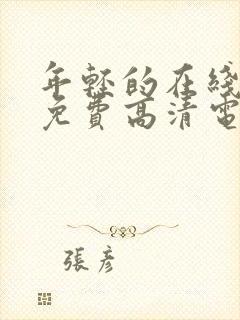 年轻的在线
免費高清電
張彥